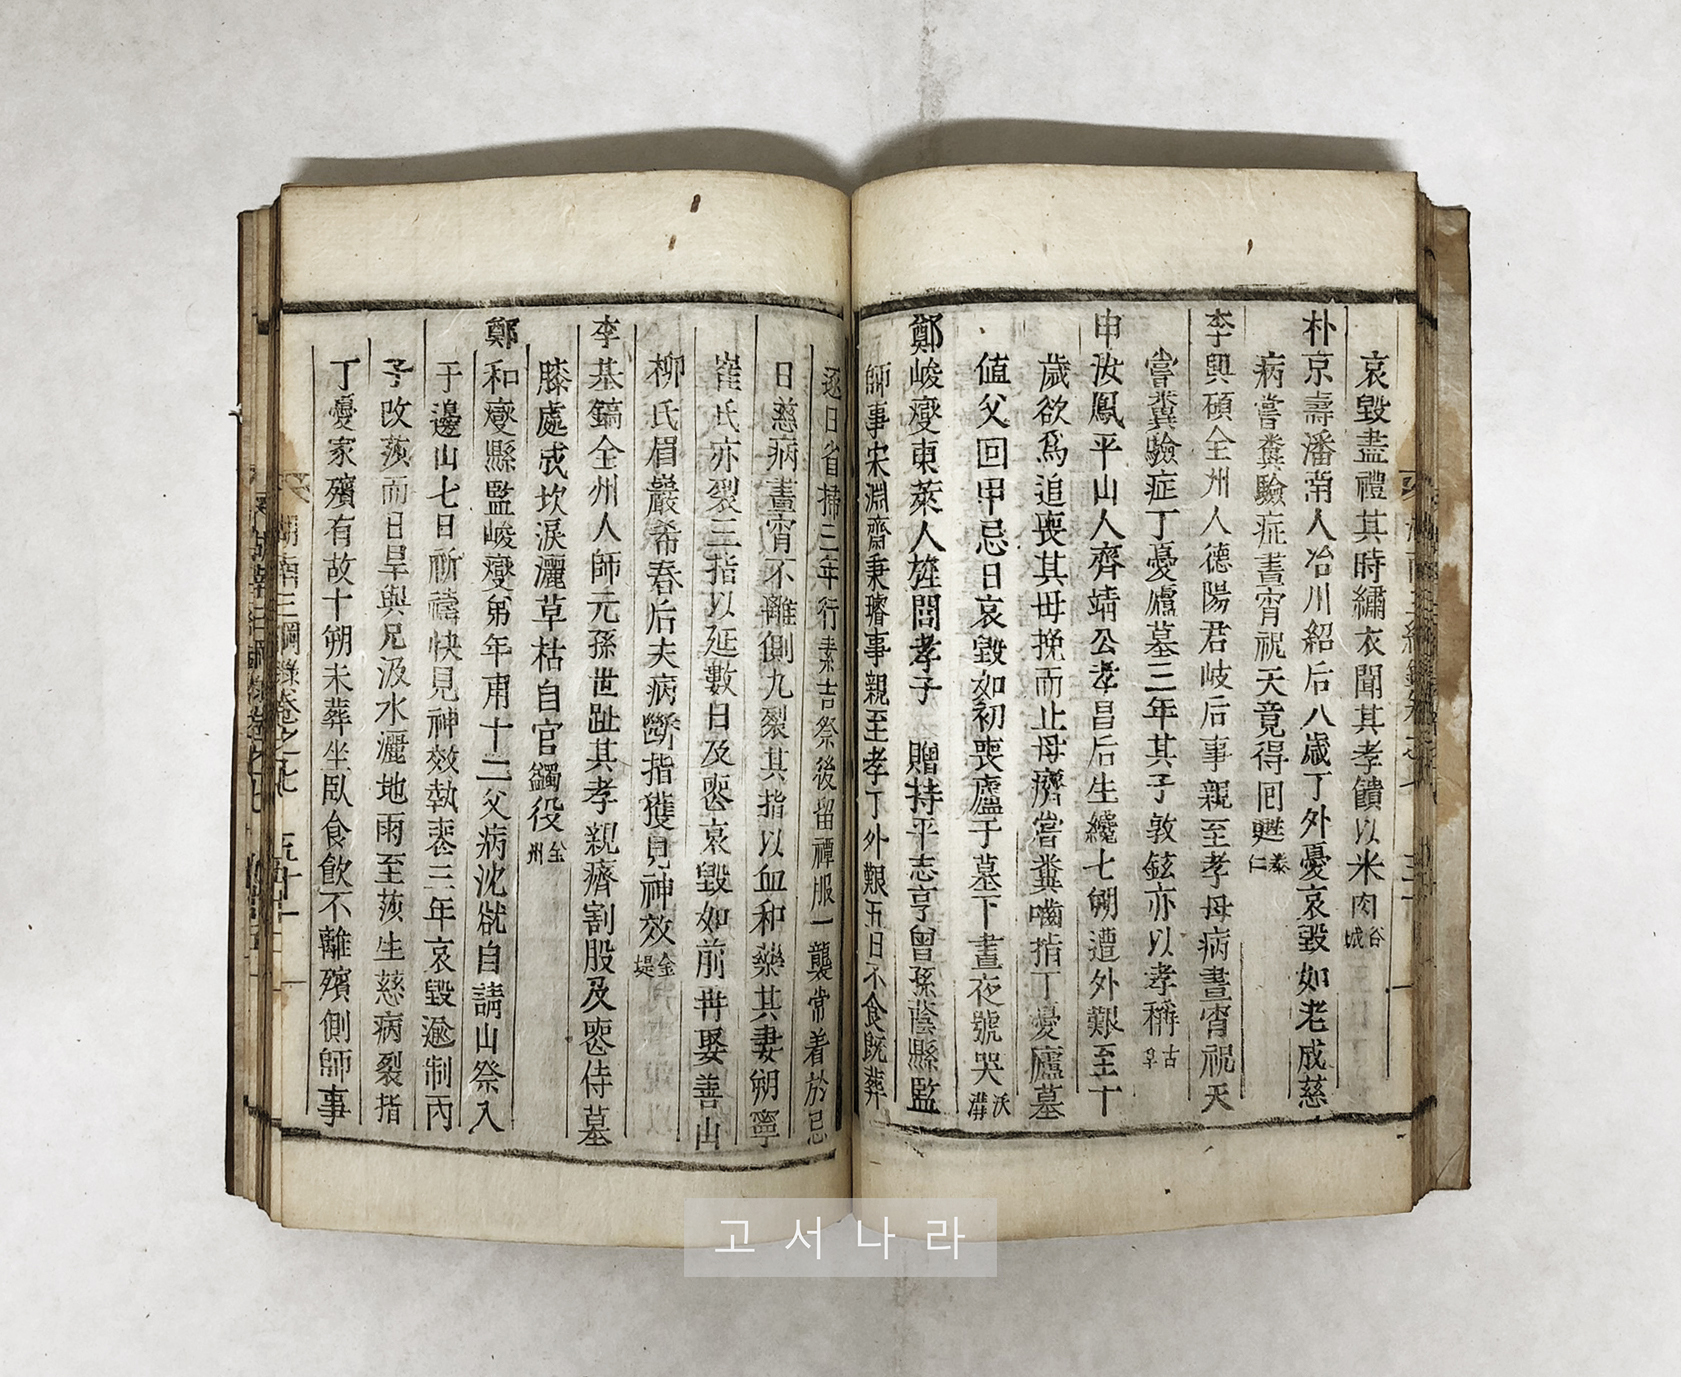 哀毁盡禮其時繡衣聞其孝饋以米肉谷城
朴京壽潘南人冶川紹后八歲丁外憂哀毀如老成慈
病嘗糞驗症晝宵祝天竟得回甦泰仁
李興碩全州人德陽君岐后事親至孝母病晝宵祝天
嘗糞驗症丁憂廬墓三年其子敦鉉亦以孝稱古阜
申汝鳳平山人齊靖公孝昌后生纔七朔遭外艱至十
歲欲爲追喪其母挽而止母癠嘗糞嚙指丁憂廬墓
値父回甲忌日哀毀如初喪廬于墓下晝夜號哭沃溝
鄭峻燮東萊人旌閭孝子 贈持平志亨曾孫蔭縣監
師事宋淵齋秉璿事親至孝丁外艱五日不食旣葬
逐日省掃三年行素吉祭後留禫服一襲常着於忌
日慈病晝宵不離側九裂其指以血和藥其妻朔寧
崔氏亦裂三指以延數日及喪哀毀如前再娶善山
柳氏眉巖希春后夫病斷指獲見神效金堤
李基鎬全州人師元孫世趾其孝親癠割股及喪侍墓
膝處成坎淚灑草枯自官蠲役金州
鄭和燮縣監峻燮弟年甫十二父病沈欿自請山祭入
于邊山七日祈禱快見神效執喪三年哀毀逾制丙
子改莎而日旱與兄汲水灑地雨至莎生慈病裂指
丁憂家殯有故十朔未葬坐臥食飮不離殯側師事
湖南三綱錄卷之七 五十一
고서나라